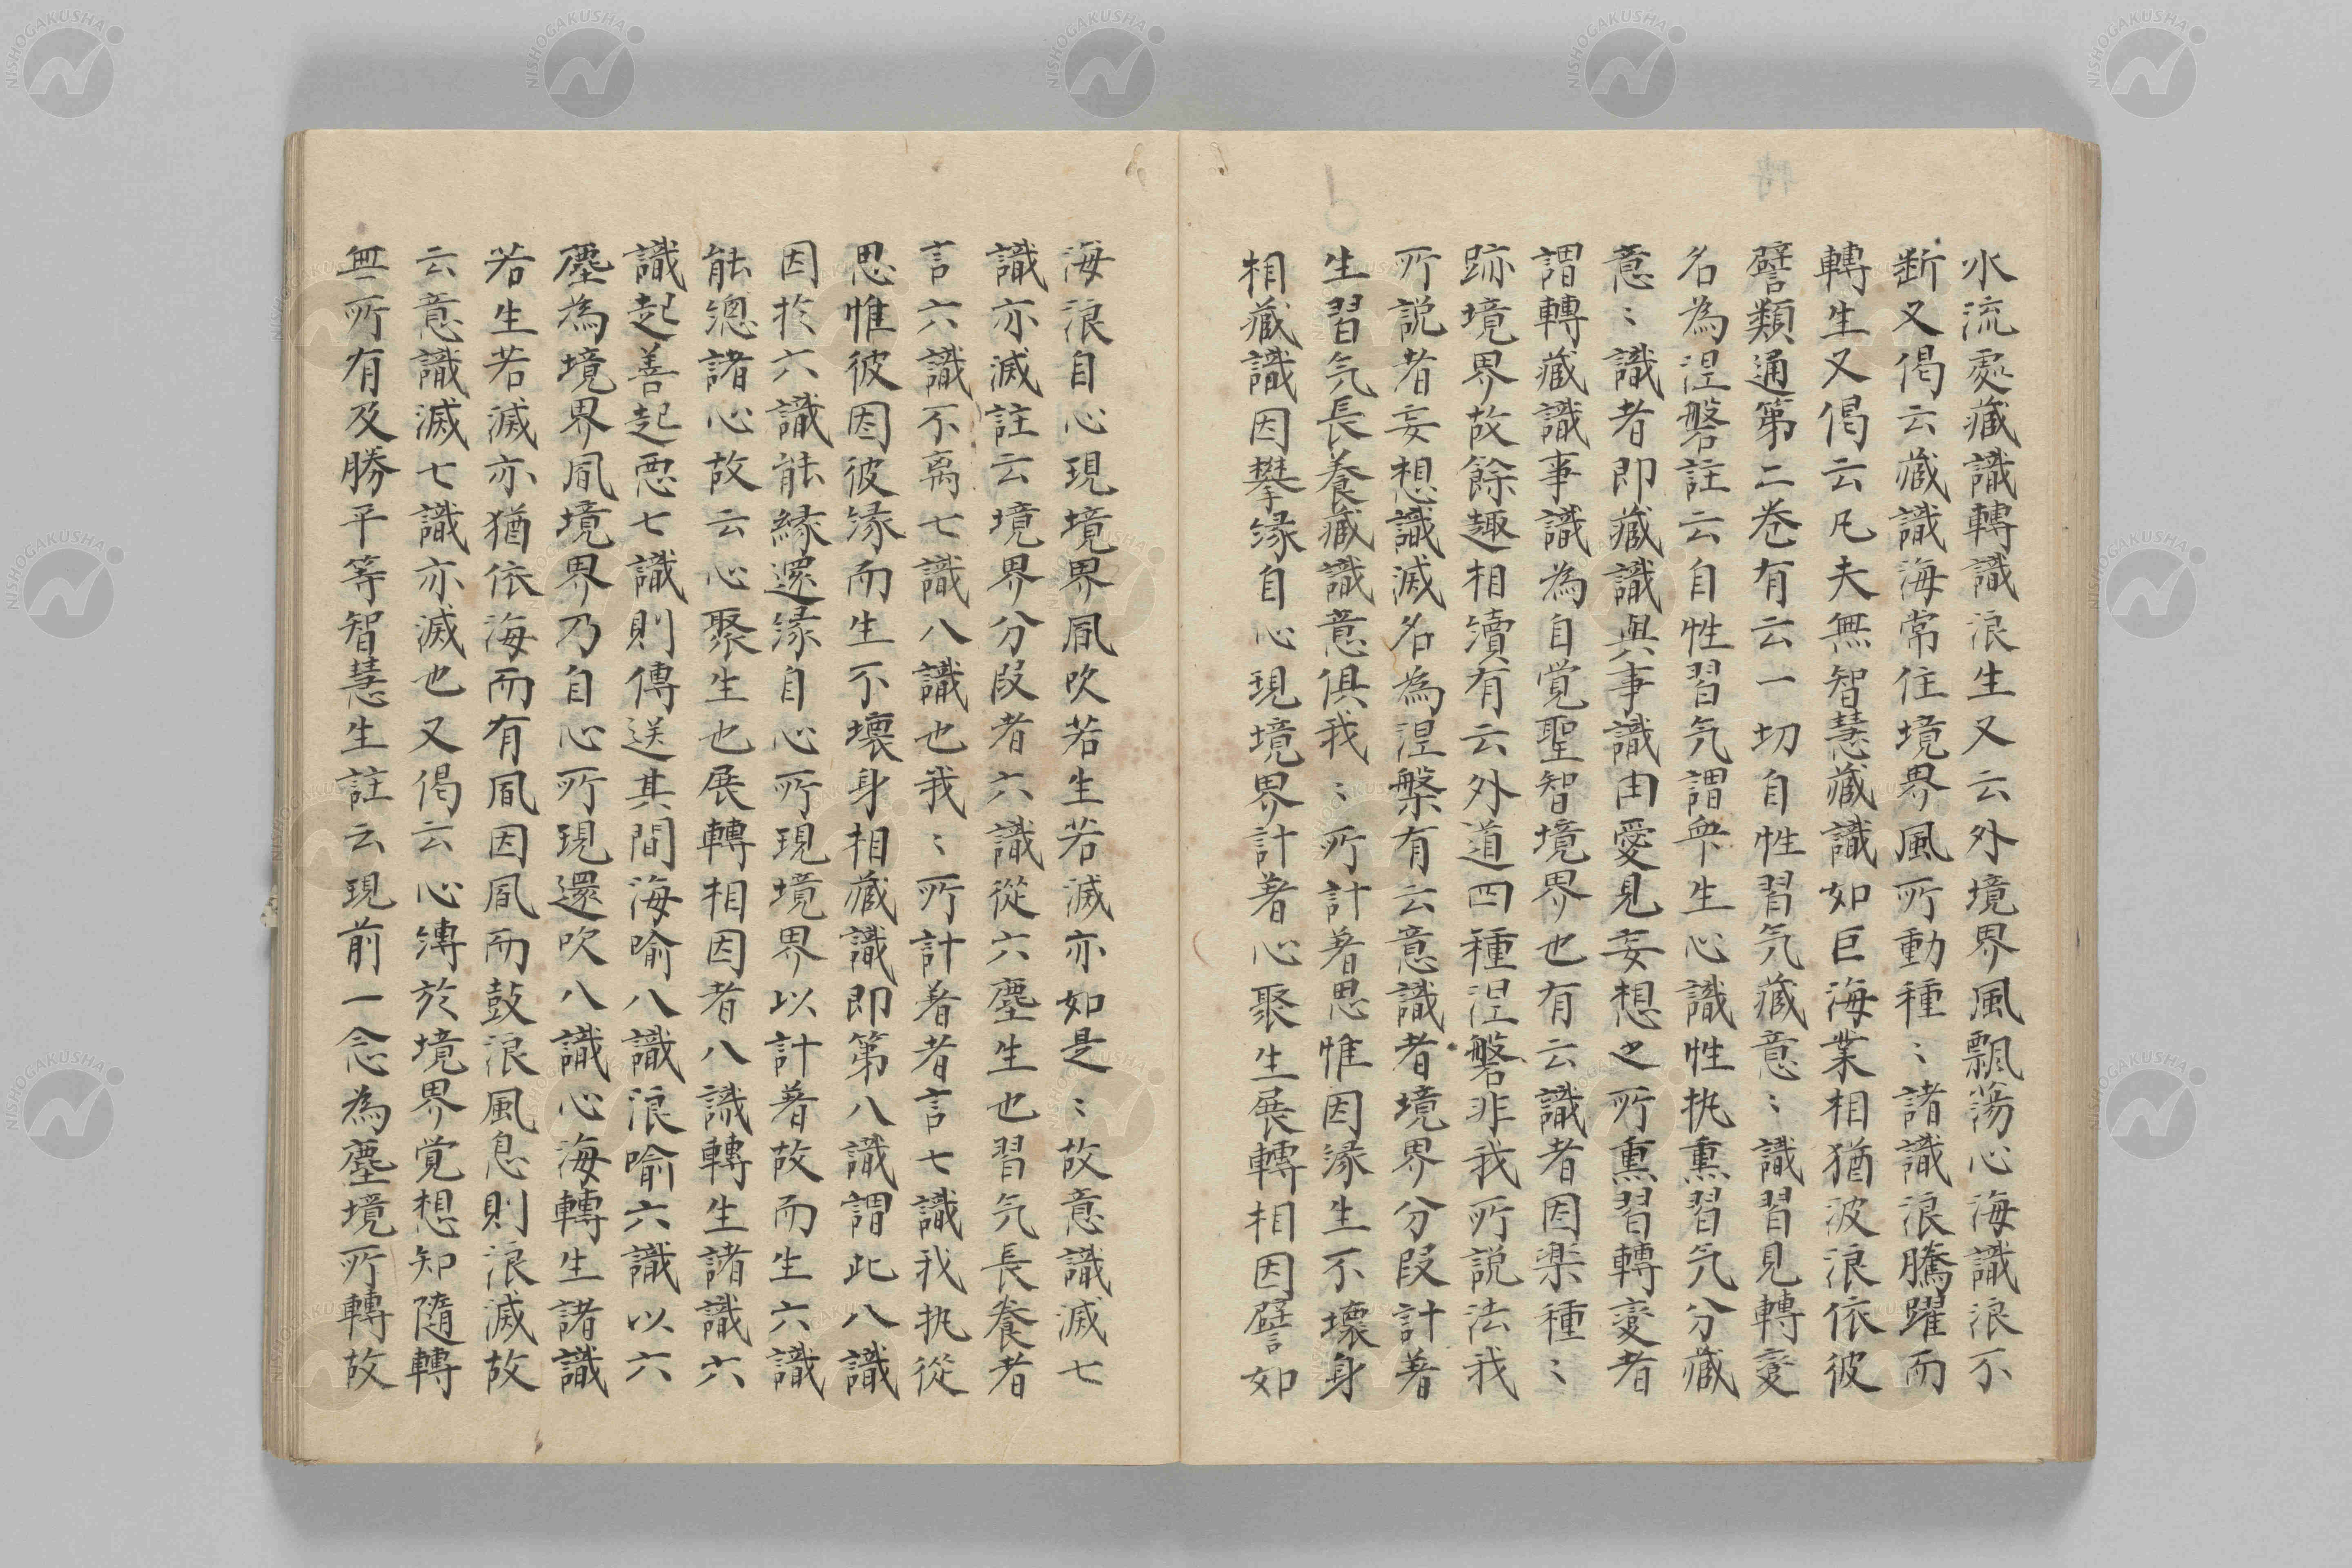 水流處藏識轉識浪生又云外境界風飄蕩心海識浪不
断又偈云藏識海常住境界風所動種〻諸識浪騰躍而
轉生又偈云凡夫無智慧藏識如巨海業相猶波浪依彼
譬類通第二巻有云一切自性習気藏意〻識習見轉変
名為涅槃註云自性習気謂衆生心識性执熏習気分藏
意〻識者即藏識與事識由愛見妄想之所熏習轉変者
謂轉藏識事識為自覚聖智境界也有云識者因楽種〻
跡境界故餘趣相續有云外道四種涅槃非我所説法我
所説者妄想識滅名為涅槃有云意識者境界分段計著
生習気長養藏識意俱我〻所計著思惟因縁生不壞身
相藏識因攀縁自心現境界計著心聚生展轉相因譬如
海浪自心現境界風吹若生若滅亦如是〻故意識滅七
識亦滅註云境界分段者六識從六塵生也習気長養者
言六識不离七識八識也我〻所計著者言七識我执從
思惟彼因彼縁而生不壞身相藏識即第八識謂此八識
因於六識能縁還縁自心所現境界以計著故而生六識
能總諸心故云心聚生也展轉相因者八識轉生諸識六
識起善起悪七識則傳送其間海喻八識浪喻六識以六
塵為境界風境界乃自心所現還吹八識心海轉生諸識
若生若滅亦猶依海而有風因風而鼓浪風息則浪滅故
云意識滅七識亦滅也又偈云心縛於境界覚想知隨轉
無所有及勝平等智慧生註云現前一念為塵境所轉故
NISHOGAKUSHA